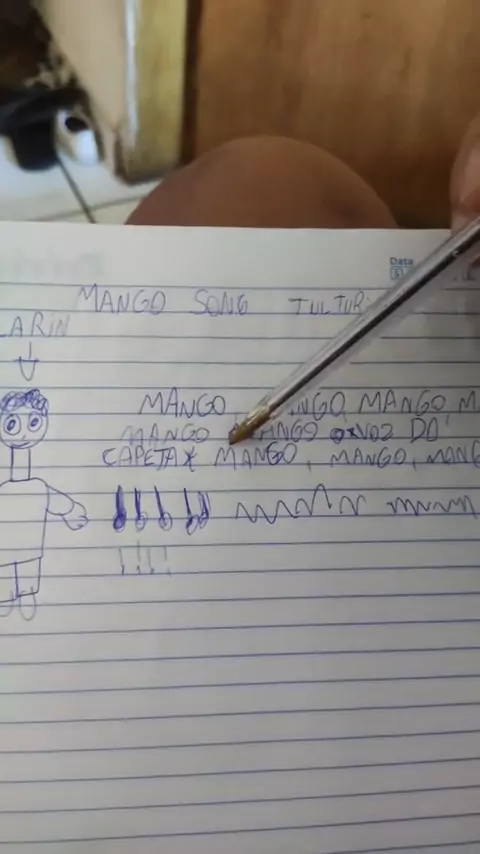 Data
MANGO SONG
LARIN
MANGO, MANGO, MANGO M
MANGO MANGO VOZ DO
CAPETA* MANGO, MANGO, MANG